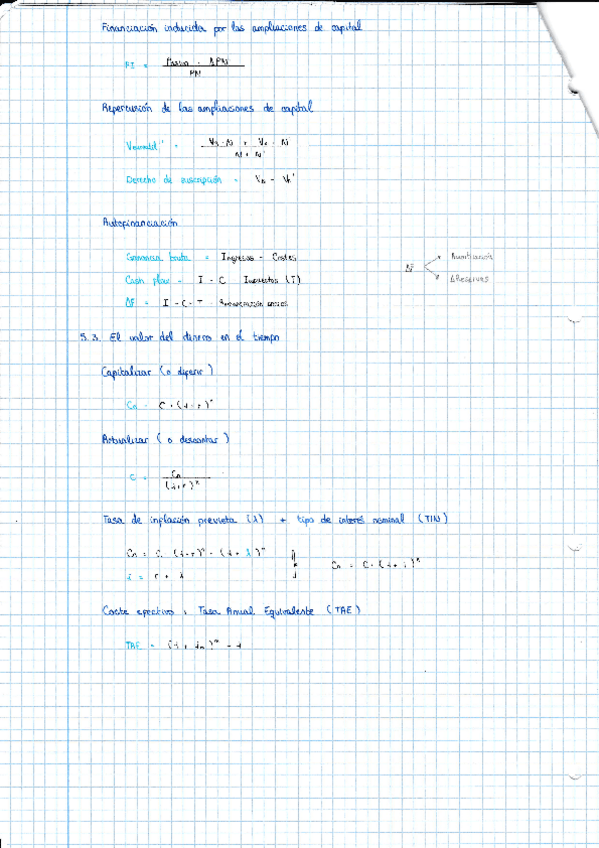 Financiación inducida por las ampliaciones de capital
FI = Pasivo · ΔPN / PN
Repercusión de las ampliaciones de capital
V₀ · N + Vₑ · N' / N + N'
Derecho de suscripción =
Autofinanciación
Ganancia bruta = Ingresos - Costes
Cash flow = I - C Impuestos (T)
AF = I - C - T -
AF
Amortización
ΔReservas
5.3. El valor del dinero en el tiempo
Capitalizar (o diferir)
Cn = C · (1+r)ⁿ
Actualizar (o descontar)
C = Cn / (1+r)ⁿ
Tasa de inflación prevista (λ) + tipo de interés nominal (TIN)
Cn = C · (1+r)ⁿ · (1+λ)ⁿ
Cn = C · (1+i)ⁿ
i = r + λ
Coste efectivo, Tasa Anual Equivalente (TAE)
TAE = (1 + iₘ)ᵐ - 1